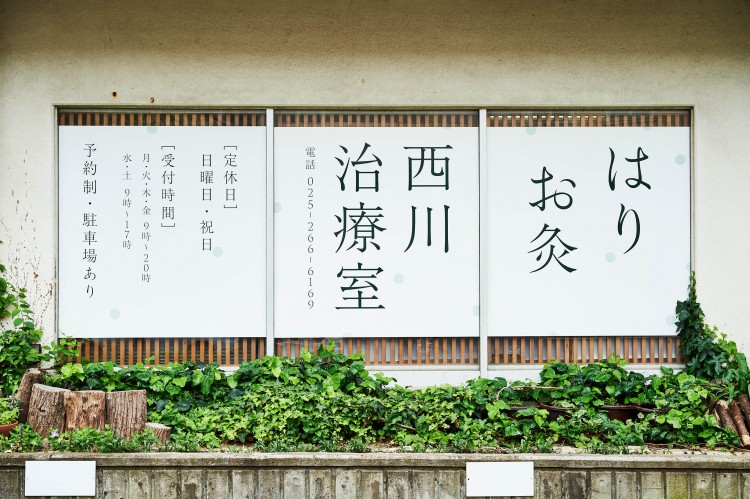 はり
お灸
西川
治療室
電話 025-266-6169
[定休日]
日曜日・祝日
[受付時間]
月・火・木・金 9時~20時
水・土 9時~17時
予約制・駐車場あり